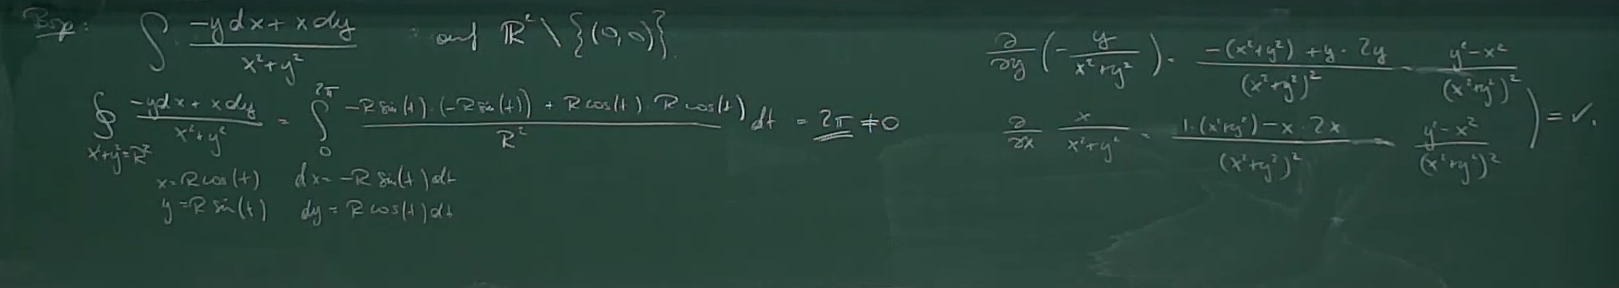 Bsp: ∫ (-y dx + x dy)/(x²+y²) : auf ℝ² \ {(0,0)}.
∮_{x²+y²=R²} (-y dx + x dy)/(x²+y²) = ∫_0^{2π} (-R sin(t)·(-R sin(t)) + R cos(t)·R cos(t))/R² dt = 2π ≠ 0
x = R cos(t) dx = -R sin(t) dt
y = R sin(t) dy = R cos(t) dt
∂/∂y (- y/(x²+y²)) = (-(x²+y²) + y·2y)/(x²+y²)² = (y²-x²)/(x²+y²)²
∂/∂x x/(x²+y²) = (1·(x²+y²) - x·2x)/(x²+y²)² = (y²-x²)/(x²+y²)² ) = ✓.